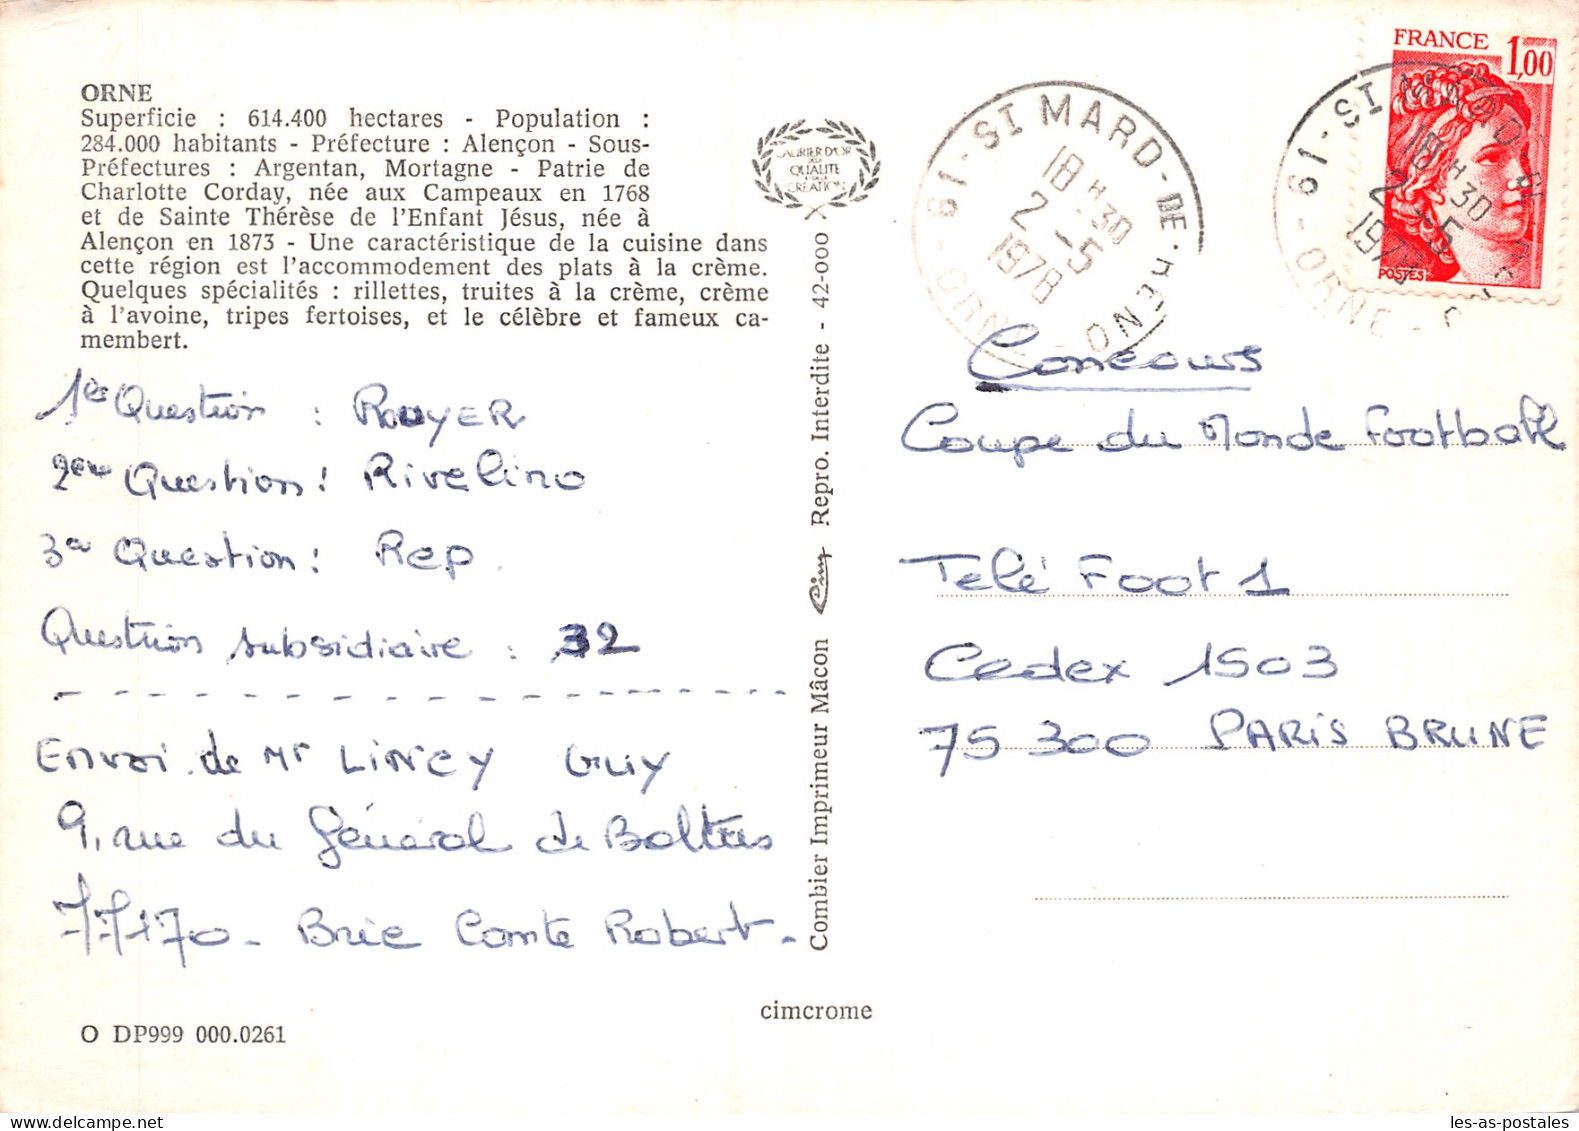 ORNE
Superficie : 614.400 hectares - Population :
284.000 habitants - Préfecture : Alençon - Sous-
Préfectures : Argentan, Mortagne - Patrie de
Charlotte Corday, née aux Campeaux en 1768
et de Sainte Thérèse de l'Enfant Jésus, née à
Alençon en 1873 - Une caractéristique de la cuisine dans
cette région est l'accommodement des plats à la crème.
Quelques spécialités : rillettes, truites à la crème, crème
à l'avoine, tripes fertoises, et le célèbre et fameux ca-
membert.
1ère Question : ROUYER
2ème Question : Rivelino
3e Question : Rep.
Question subsidiaire : 32
Envoi de Mr LINCY Guy
9, rue du Général de Boltus
77170 - Brie Comte Robert -
O DP999 000.0261
LAURIER D'OR
QUALITE
CREATION
Combier Imprimeur Mâcon Cim Repro. Interdite - 42-000
cimcrome
61 - ST MARD - DE - RENO
ORNE
18 H 30
2 - 5
1978
FRANCE 1,00
POSTES
61 - ST MARD
ORNE
18 H 30
2 - 5
1978
Concours
Coupe du Monde Football
Télé Foot 1
Cedex 1503
75300 PARIS BRUNE
les-as-postales